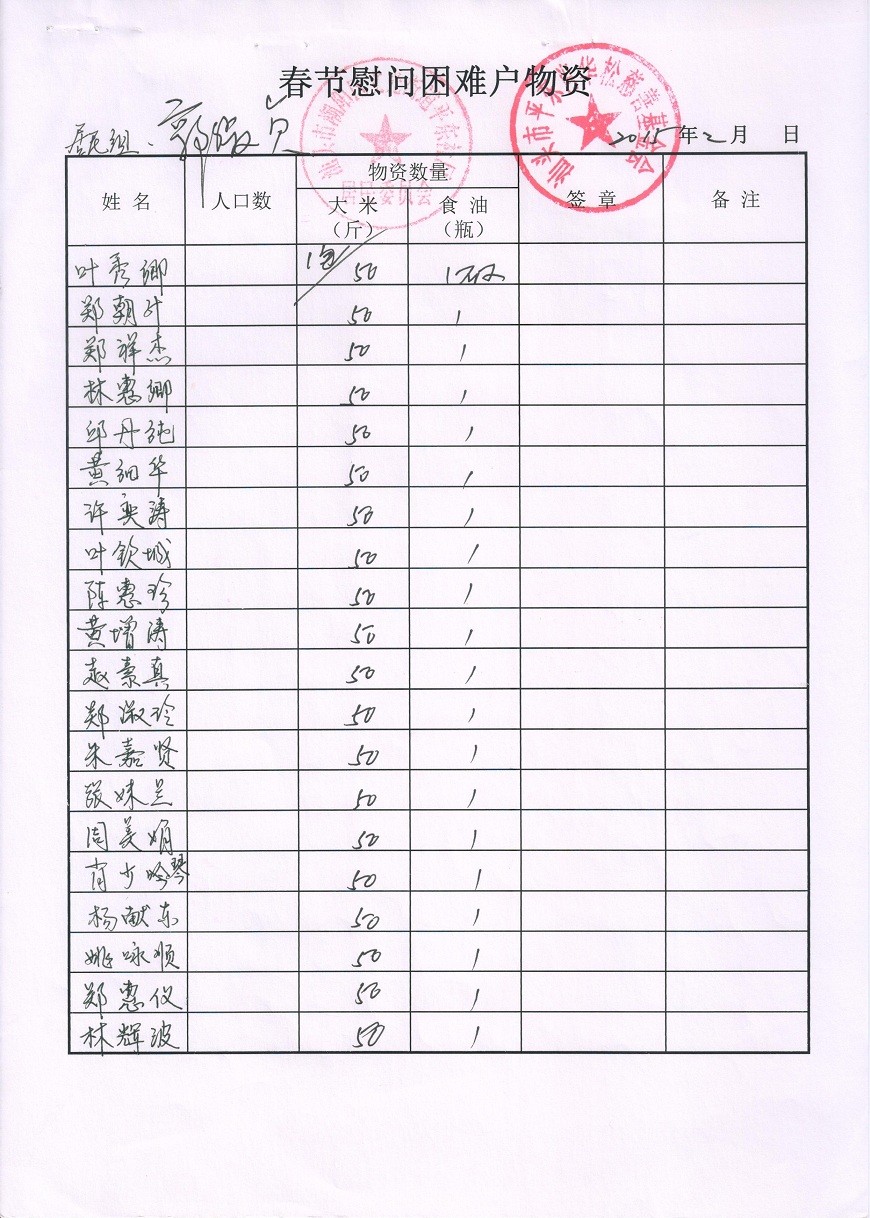 春节慰问困难户物资
居民组:
2015年2月 日
姓名 人口数 物资数量 签章 备注
大米(斤) 食油(瓶)
叶秀卿 1包 50 1瓶
郑朝叶 50 1
郑祥杰 50 1
林惠卿 50 1
邱丹纯 50 1
黄细华 50 1
许奕涛 50 1
叶钦城 50 1
陈惠珍 50 1
黄增涛 50 1
赵素真 50 1
郑淑玲 50 1
朱嘉贤 50 1
张妹兰 50 1
周美娟 50 1
肖少吟琴 50 1
杨献东 50 1
姚咏顺 50 1
郑惠仪 50 1
林辉波 50 1
居民委员会
汕头市平东 华松慈善基金会